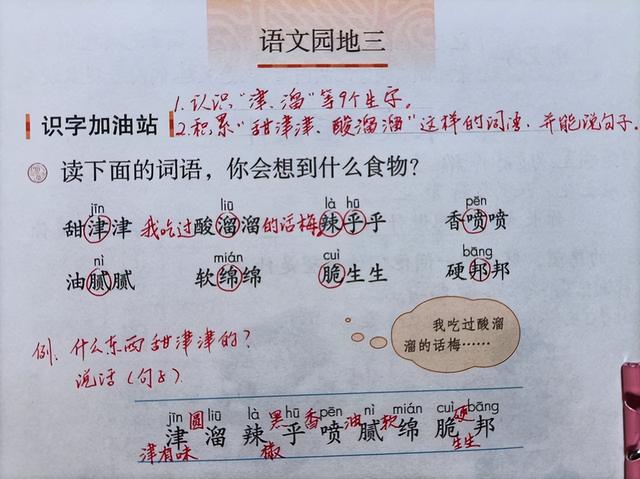 语文园地三
1.认识“津、溜”等9个生字。
识字加油站
2.积累“甜津津、酸溜溜”这样的词语,并能说句子。
读下面的词语,你会想到什么食物?
jīn liū là hū pēn
甜津津 我吃过酸溜溜的话梅 辣乎乎 香喷喷
nì mián cuì bāng
油腻腻 软绵绵 脆生生 硬邦邦
我吃过酸溜
溜的话梅……
例:什么东西甜津津的?
说话(句子)
jīn liū là hū pēn nì mián cuì bāng
津 圆 溜 辣 黑 乎 香 喷 油 腻 软 绵 脆 硬 邦
津有味 椒 生生